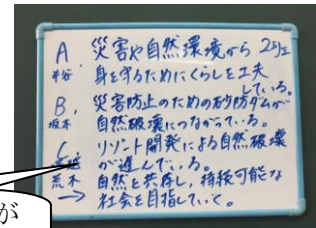 A 災害や自然環境から 2班
半谷 身を守るためにくらしを工夫
している。
B, 災害防止のための砂防ダムが
坂本 自然破壊につながっている。
C, リゾート開発による自然破壊
が進んでいる。
荒木 自然と共存し、持続可能な
→ 社会を目指していく。
が